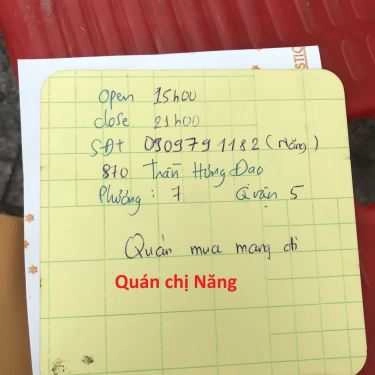 Open 15h00
close 21h00
SĐT 0909791182 (Năng)
810 Trần Hưng Đạo
Phường : 7 Quận 5
Quán mua mang đi
Quán chị Năng